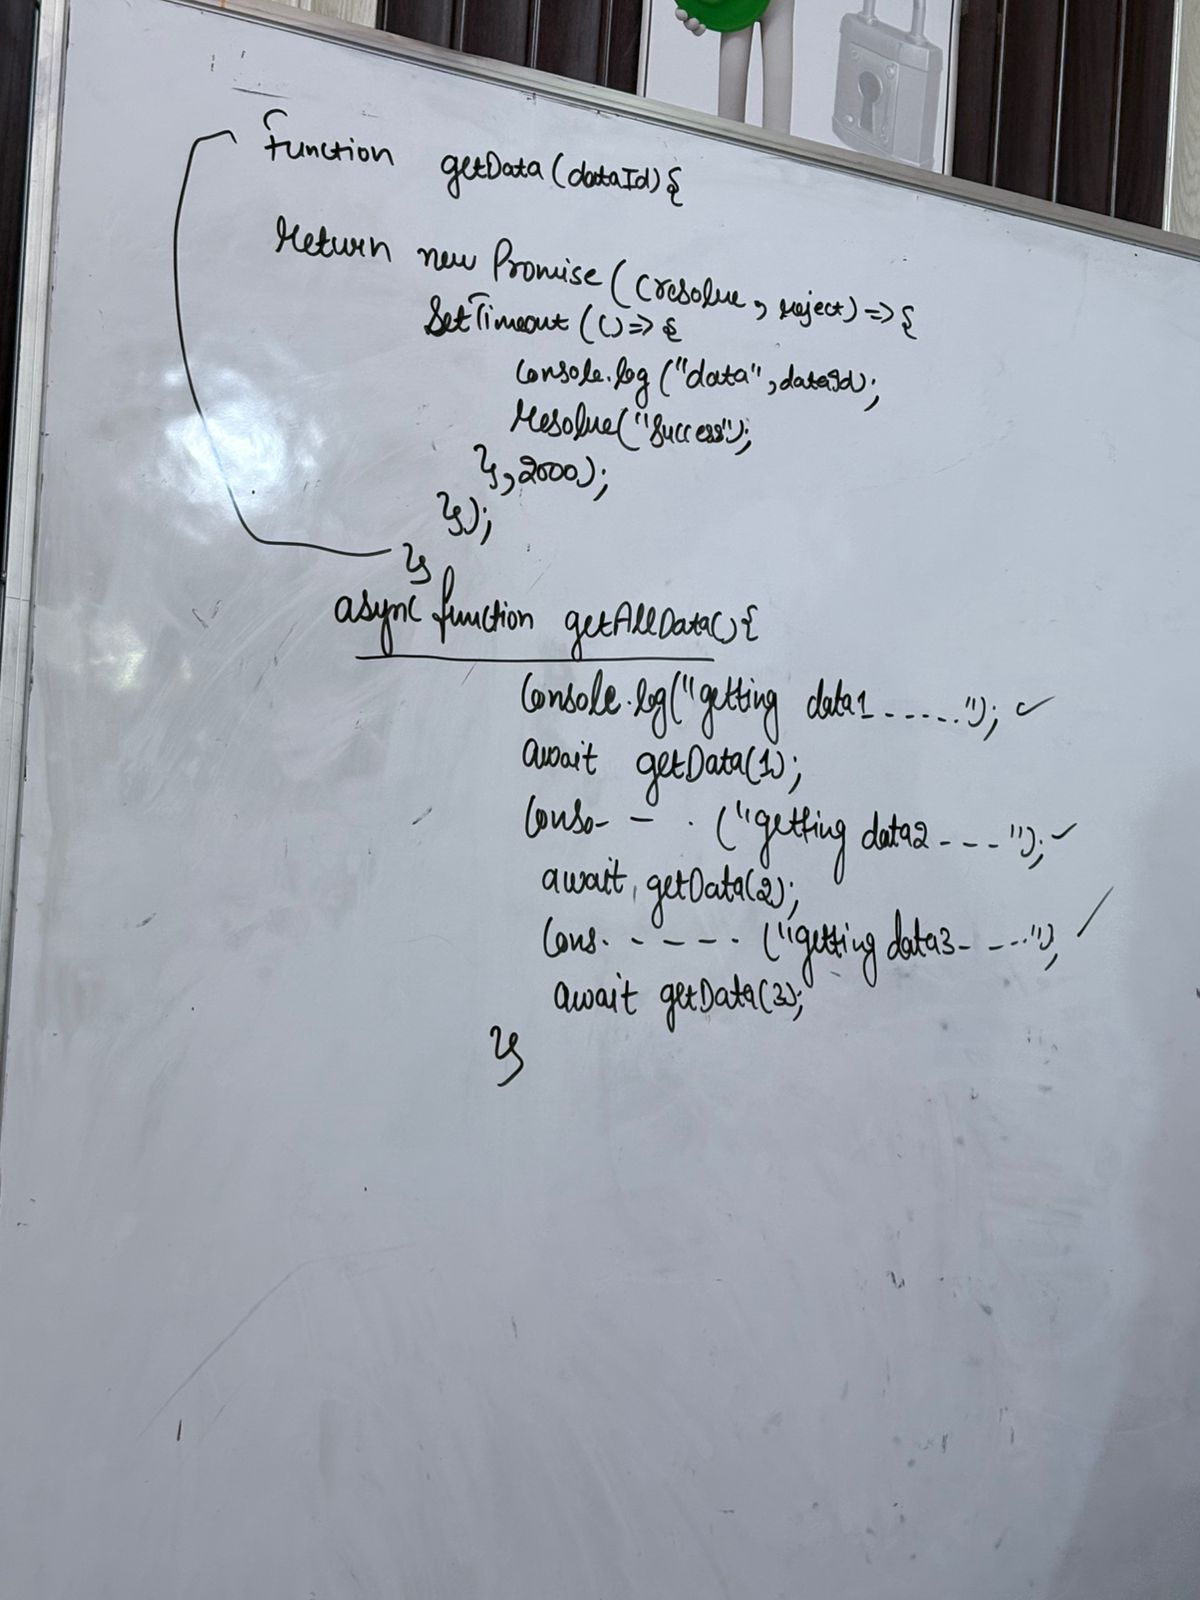 function getData(dataId){
return new Promise((resolve, reject)=>{
SetTimeout(()=>{
Console.log("data",dataId);
resolve("success");
},2000);
});
}
async function getAllData(){
Console.log("getting data1......"); ✓
await getData(1);
Conso- - . ("getting data2 - - - -"); ✓
await getData(2);
Cons. - - - - . ("getting data3- - - ..."); /
await getData(3);
}